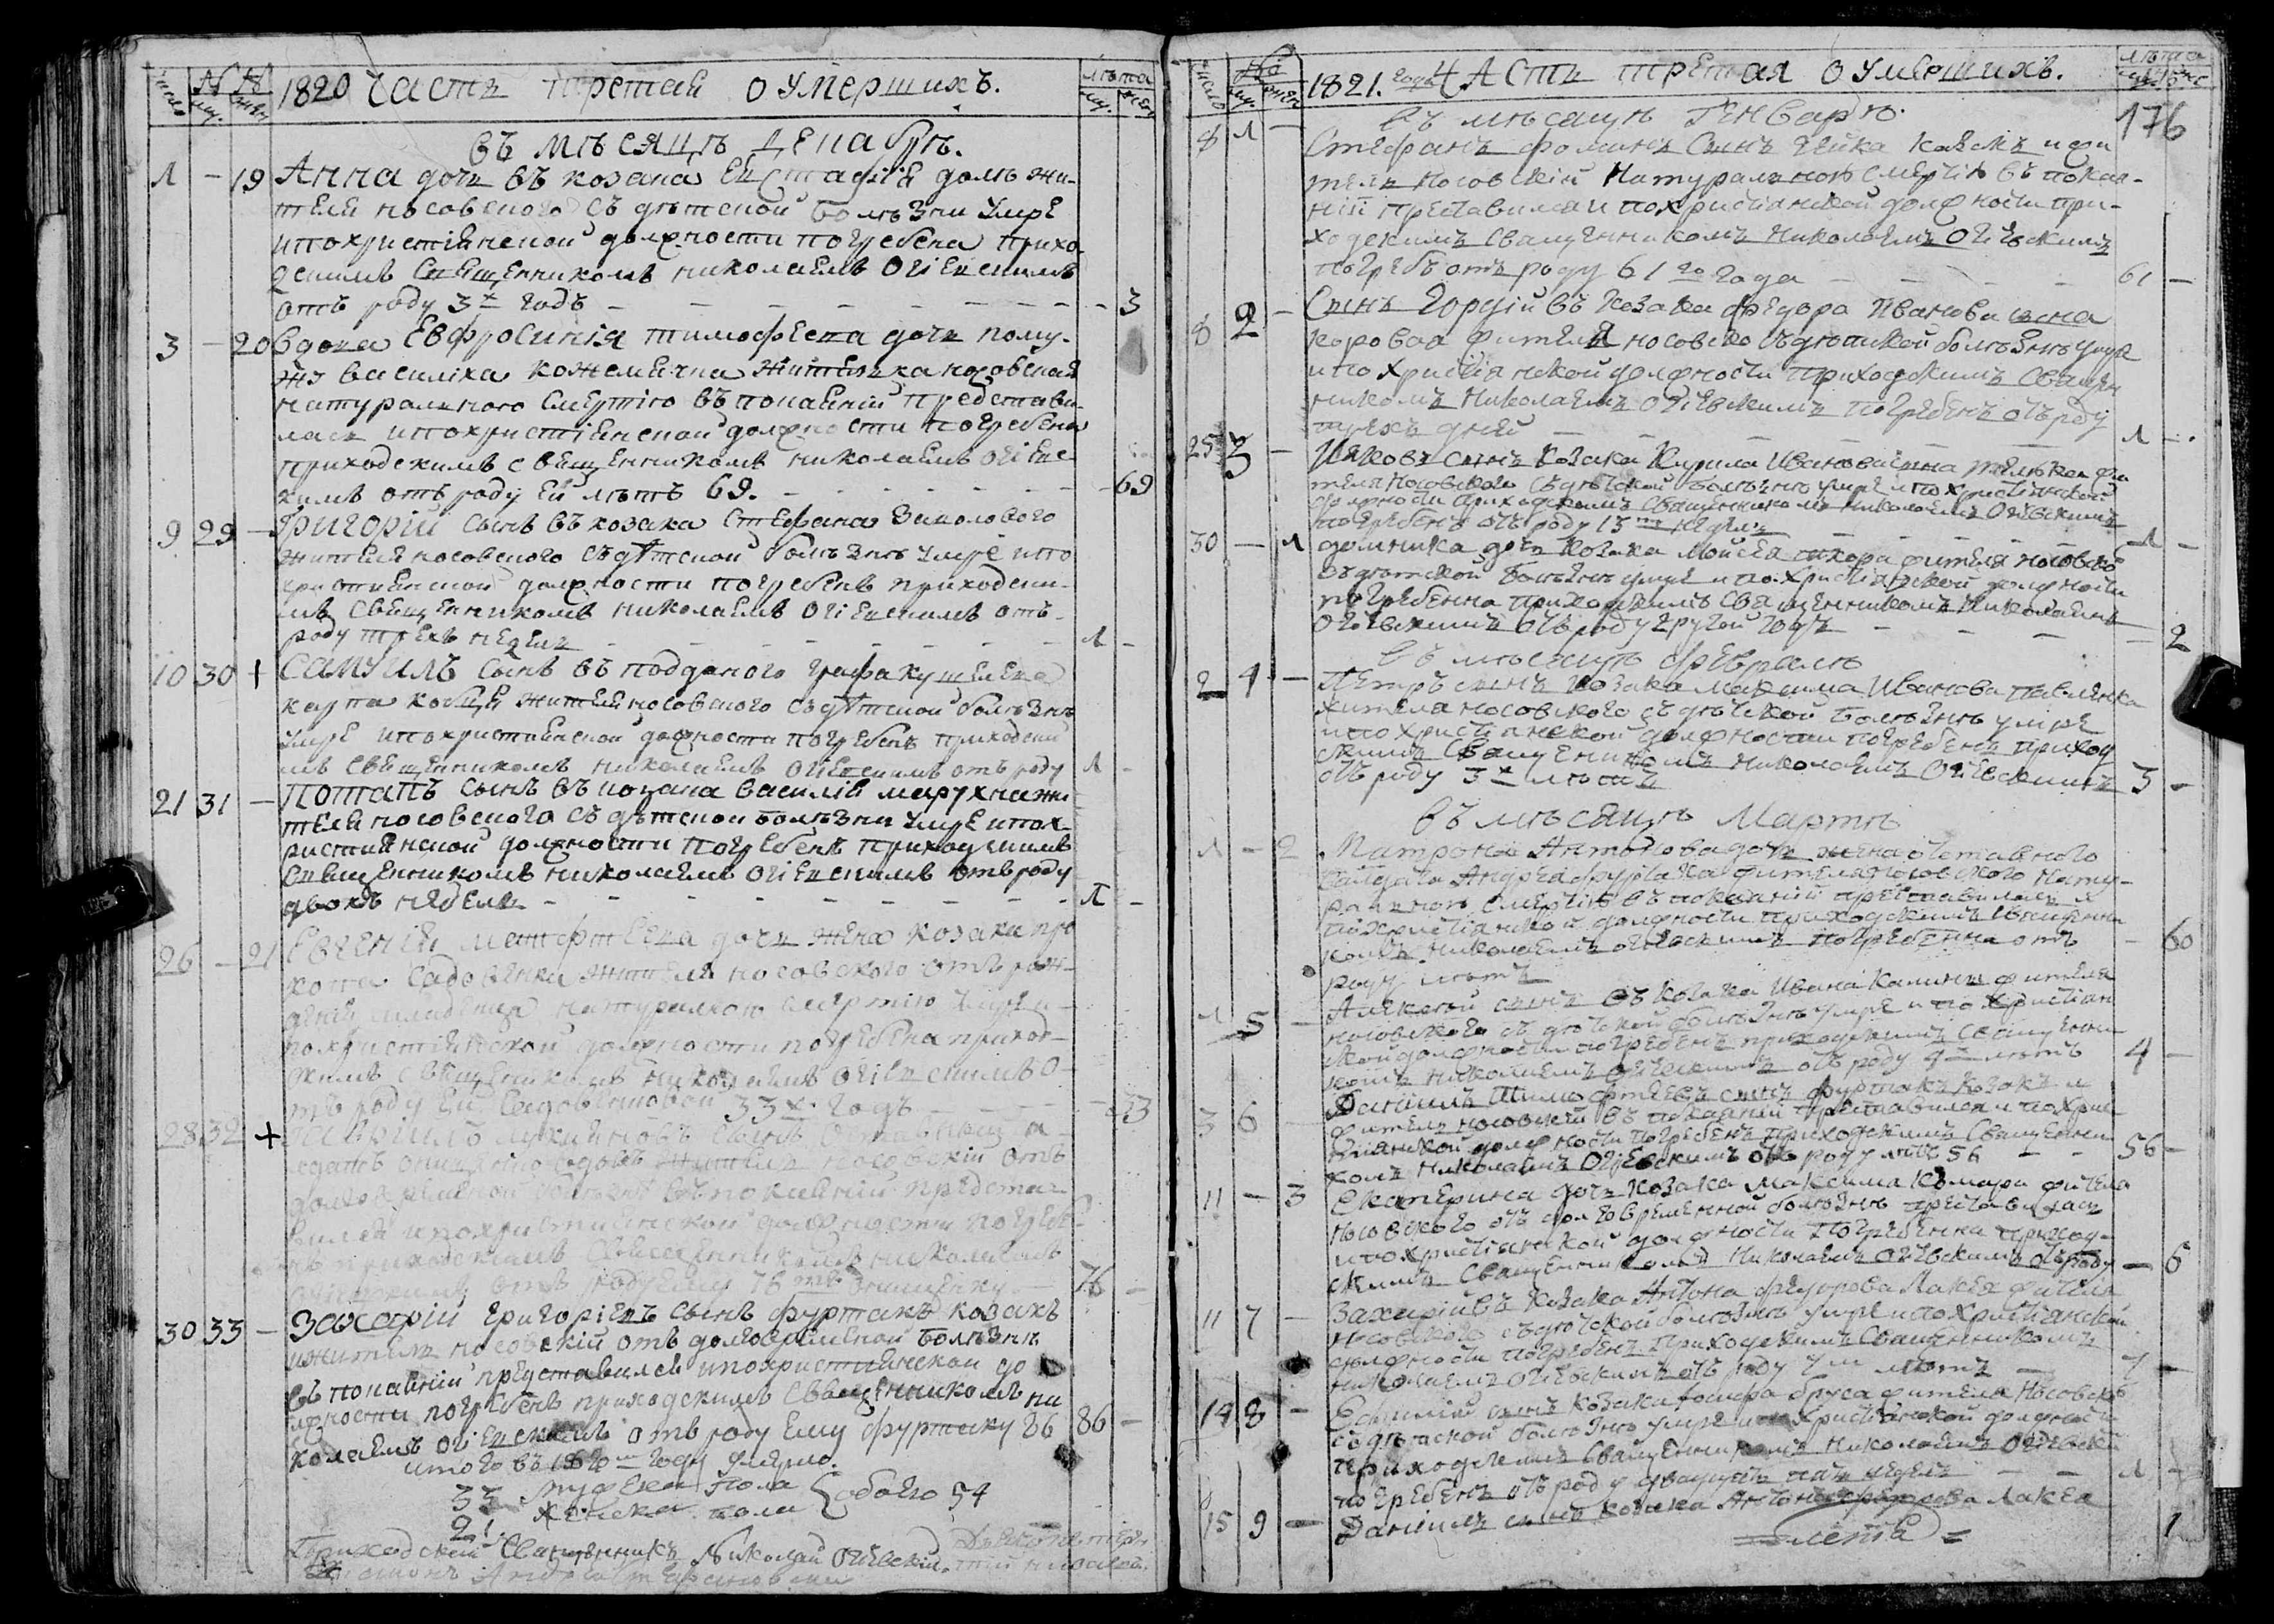 число
№ №
му. жен
1820 Часть третая о умершихъ.
лѣта
му. жен
въ мѣсяцѣ декабрѣ.
1 - 19 Анна дочь въ козака Евстафія долъ жи-
теля носовского съ дѣтской болѣзни умре
и по христіянской должности погребена прихо-
дскимъ священникомъ николаемъ огіевскимъ
отъ роду 3х годъ - 3
3 - 20 Вдова Евфросинія тимофеева дочь пому-
жу василіха кожемячка жителька носовская
натуралного смертію въ покаяніи представи-
лась и по христіянской должности погребена
приходскимъ священникомъ николаемъ огіевс-
кимъ отъ роду ей лѣтъ 69. - 69
9 29 - Григорій сынъ въ козака Стефана Заполового
жителя носовского съ дѣтской болѣзнѣ умре и по
христіянской должности погребенъ приходски-
мъ священникомъ николаемъ огіевскимъ отъ
роду трехъ недель 1 -
10 30 + Самуилъ сынъ въ подданого графа кушелева
карпа кобця жителя носовского съ дѣтской болѣзнѣ
умре и по христіянской должности погребенъ приходски
мъ священникомъ николаемъ огіевскимъ отъ роду 1 -
21 31 - Потапъ сынъ въ козака василія марухна жи
теля носовского съ дѣтской болѣзни умре и по х-
ристиянской должности погребенъ приходскимъ
священникомъ николаемъ огіевскимъ отъ роду
двохъ недель - 1 -
26 - 21 Евгенія дочь жена козака про
копа Садовенка жителя носовского отъ рож-
денія младенца натуралною смертію умре и
по христіянской должности погребена приход-
скимъ священикомъ николаемъ огіевскимъ о-
тъ роду ей Садовенковой 33х годъ - 33
28 32 + Гавріилъ лукияновъ сынъ
жителъ носовскій отъ
долговременной болѣзнѣ въ покаяніи предста-
вился и по христіянской должности погребе-
нъ приходскимъ священникомъ николаемъ
огіевскимъ отъ роду ему 76 76 -
30 33 - Захарій григоріевъ сынъ фуртакъ козакъ
и жителъ носовскій отъ долговременной болѣзнѣ
въ покаяніи представился и по христіянской до
лжности погребенъ приходскимъ священникомъ ни
колаемъ огіевскимъ отъ роду ему фуртаку 86 86 -
итого въ 1820 году умерло.
33 мужеска пола
21 женска пола обоего 54
Приходскій Священникъ Николай Огіевскій.
число
№
му. жен
1821. года Часть третая о умершихъ.
лѣта
176
Въ мѣсяцѣ Генварѣ.
8 1 - Стефанъ фоминъ сынъ козакъ и жи
тель Носовскій Натуралною смертію въ покая-
ніи преставился и по христіянской должности при-
ходскимъ священникомъ Николаемъ Огіевскимъ
погребъ отъ роду 61 го года - 61 -
8 2 - Сынъ Гордій въ козака Федора Иванова сына
Коровая жителя носовско съ дѣтской болѣзнѣ умре
и по христіянской должности приходскимъ священ
никомъ Николаемъ Огіевскимъ погребенъ отъ роду
трехъ дней - 1 -
25 3 - Яковъ сынъ Козака Кирила Иванова сына жи
теля Носовского съ дѣтской болѣзнѣ умре и по христіянской
должности приходскимъ священникомъ Николаемъ Огіевскимъ
погребенъ отъ роду 15 недель - 1 -
30 - 1 домника дочь козака Мойсея жителя носовско
съ дѣтской болѣзнѣ умре и по христіянской должности
погребенна приходскимъ священникомъ Николаемъ
Огіевскимъ отъ роду другой годъ - 2
Въ мѣсяцѣ Февралѣ
2 4 - Петръ сынъ козака Максима Иванова павленка
жителя носовского съ дѣтской болѣзнѣ умре
и по христіянской должности погребенъ приход
скимъ священникомъ Николаемъ Огіевскимъ
отъ роду 3х лѣтъ 3 -
Въ мѣсяцѣ Мартѣ
1 - 2 Матрона Антонова дочь жена отставного
салдата Андрея фурсака жителя носовского нату-
ралною смертію въ покаяніи преставилась и
по христіянской должности приходскимъ священни
комъ Николаемъ огіевскимъ погребенна отъ - 60
роду лѣтъ
1 5 - Алексѣй сынъ въ козака Ивана Калины жителя
носовского съ дѣтской болѣзнѣ умре и по христіян
ской должности погребенъ приходскимъ священни
комъ Николаемъ Огіевскимъ отъ роду 4 лѣтъ 4 -
3 6 - Даніилъ Тимофѣевъ сынъ фуртакъ козакъ и
житель носовскій въ покаяніи преставился и по хрис
тіянской должности погребенъ приходскимъ священни
комъ Николаемъ Огіевскимъ отъ роду лѣтъ 56 - 56 -
11 - 3 Екатерина дочь козака Максима Комара жителя
носовского отъ долговременной болѣзнѣ преставилась
и по христіянской должности погребенна приход-
скимъ священникомъ Николаемъ Огіевскимъ отъ роду - 6
11 7 - Захарій въ козака Антона Федорова Лакея жителя
Носовского съ дѣтской болѣзнѣ умре и по христіянской
должности погребенъ приходскимъ священникомъ
николаемъ огіевскимъ отъ роду 7 ми лѣтъ 7 -
14 8 - Ефимій сынъ козака бруса жителя Носовско
съ дѣтской болѣзнѣ умре и по христіянской должности
приходскимъ священникомъ Николаемъ Огіевски
погребенъ отъ роду двацять пять недель - 1 -
15 9 - Даніилъ сынъ козака Антона Федорова Лакея
1